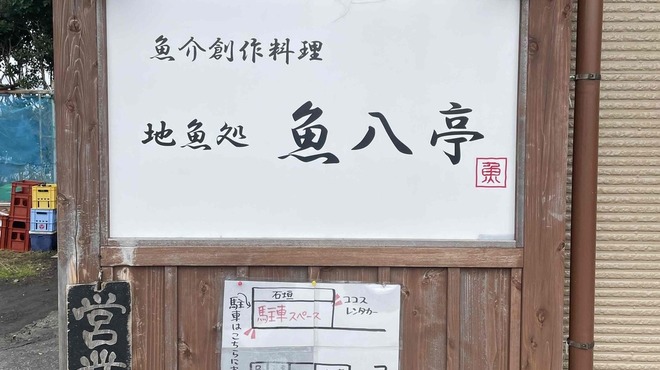 魚介創作料理
地魚処 魚八亭
魚
営業
石垣
駐車スペース
ココス
レンタカー
駐車はこちらに